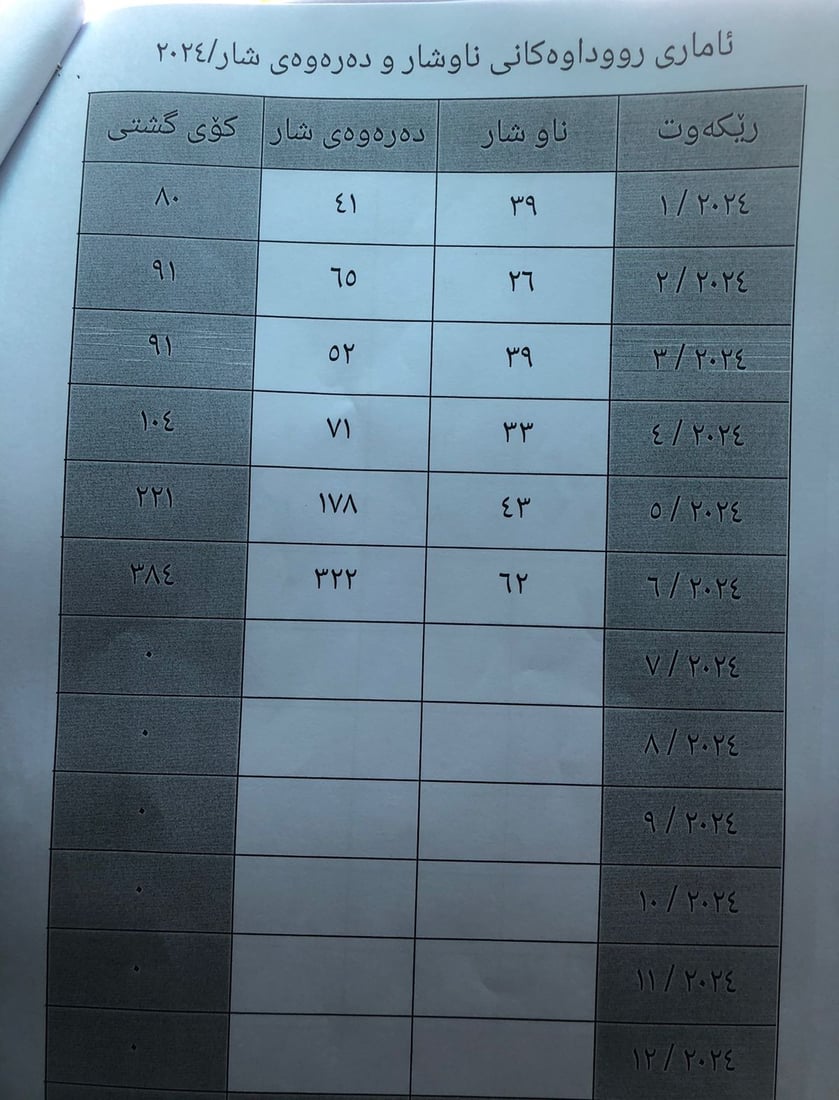 ئاماری رووداوەکانی ناوشار و دەرەوەی شار/٢٠٢٤
رێکەوت ناو شار دەرەوەی شار کۆی گشتی
١ / ٢٠٢٤ ٣٩ ٤١ ٨٠
٢ / ٢٠٢٤ ٢٦ ٦٥ ٩١
٣ / ٢٠٢٤ ٣٩ ٥٢ ٩١
٤ / ٢٠٢٤ ٣٣ ٧١ ١٠٤
٥ / ٢٠٢٤ ٤٣ ١٧٨ ٢٢١
٦ / ٢٠٢٤ ٦٢ ٣٢٢ ٣٨٤
٧ / ٢٠٢٤ ٠
٨ / ٢٠٢٤ ٠
٩ / ٢٠٢٤ ٠
١٠ / ٢٠٢٤ ٠
١١ / ٢٠٢٤ ٠
١٢ / ٢٠٢٤ ٠